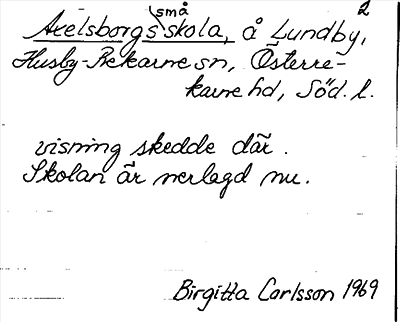 små 2
Axelsborgs skola, å Lundby,
Husby-Rekarne sn, Österre-
karne hd, Söd. l.
visning skedde där.
Skolan är nerlagd nu.
Birgitta Carlsson 1969